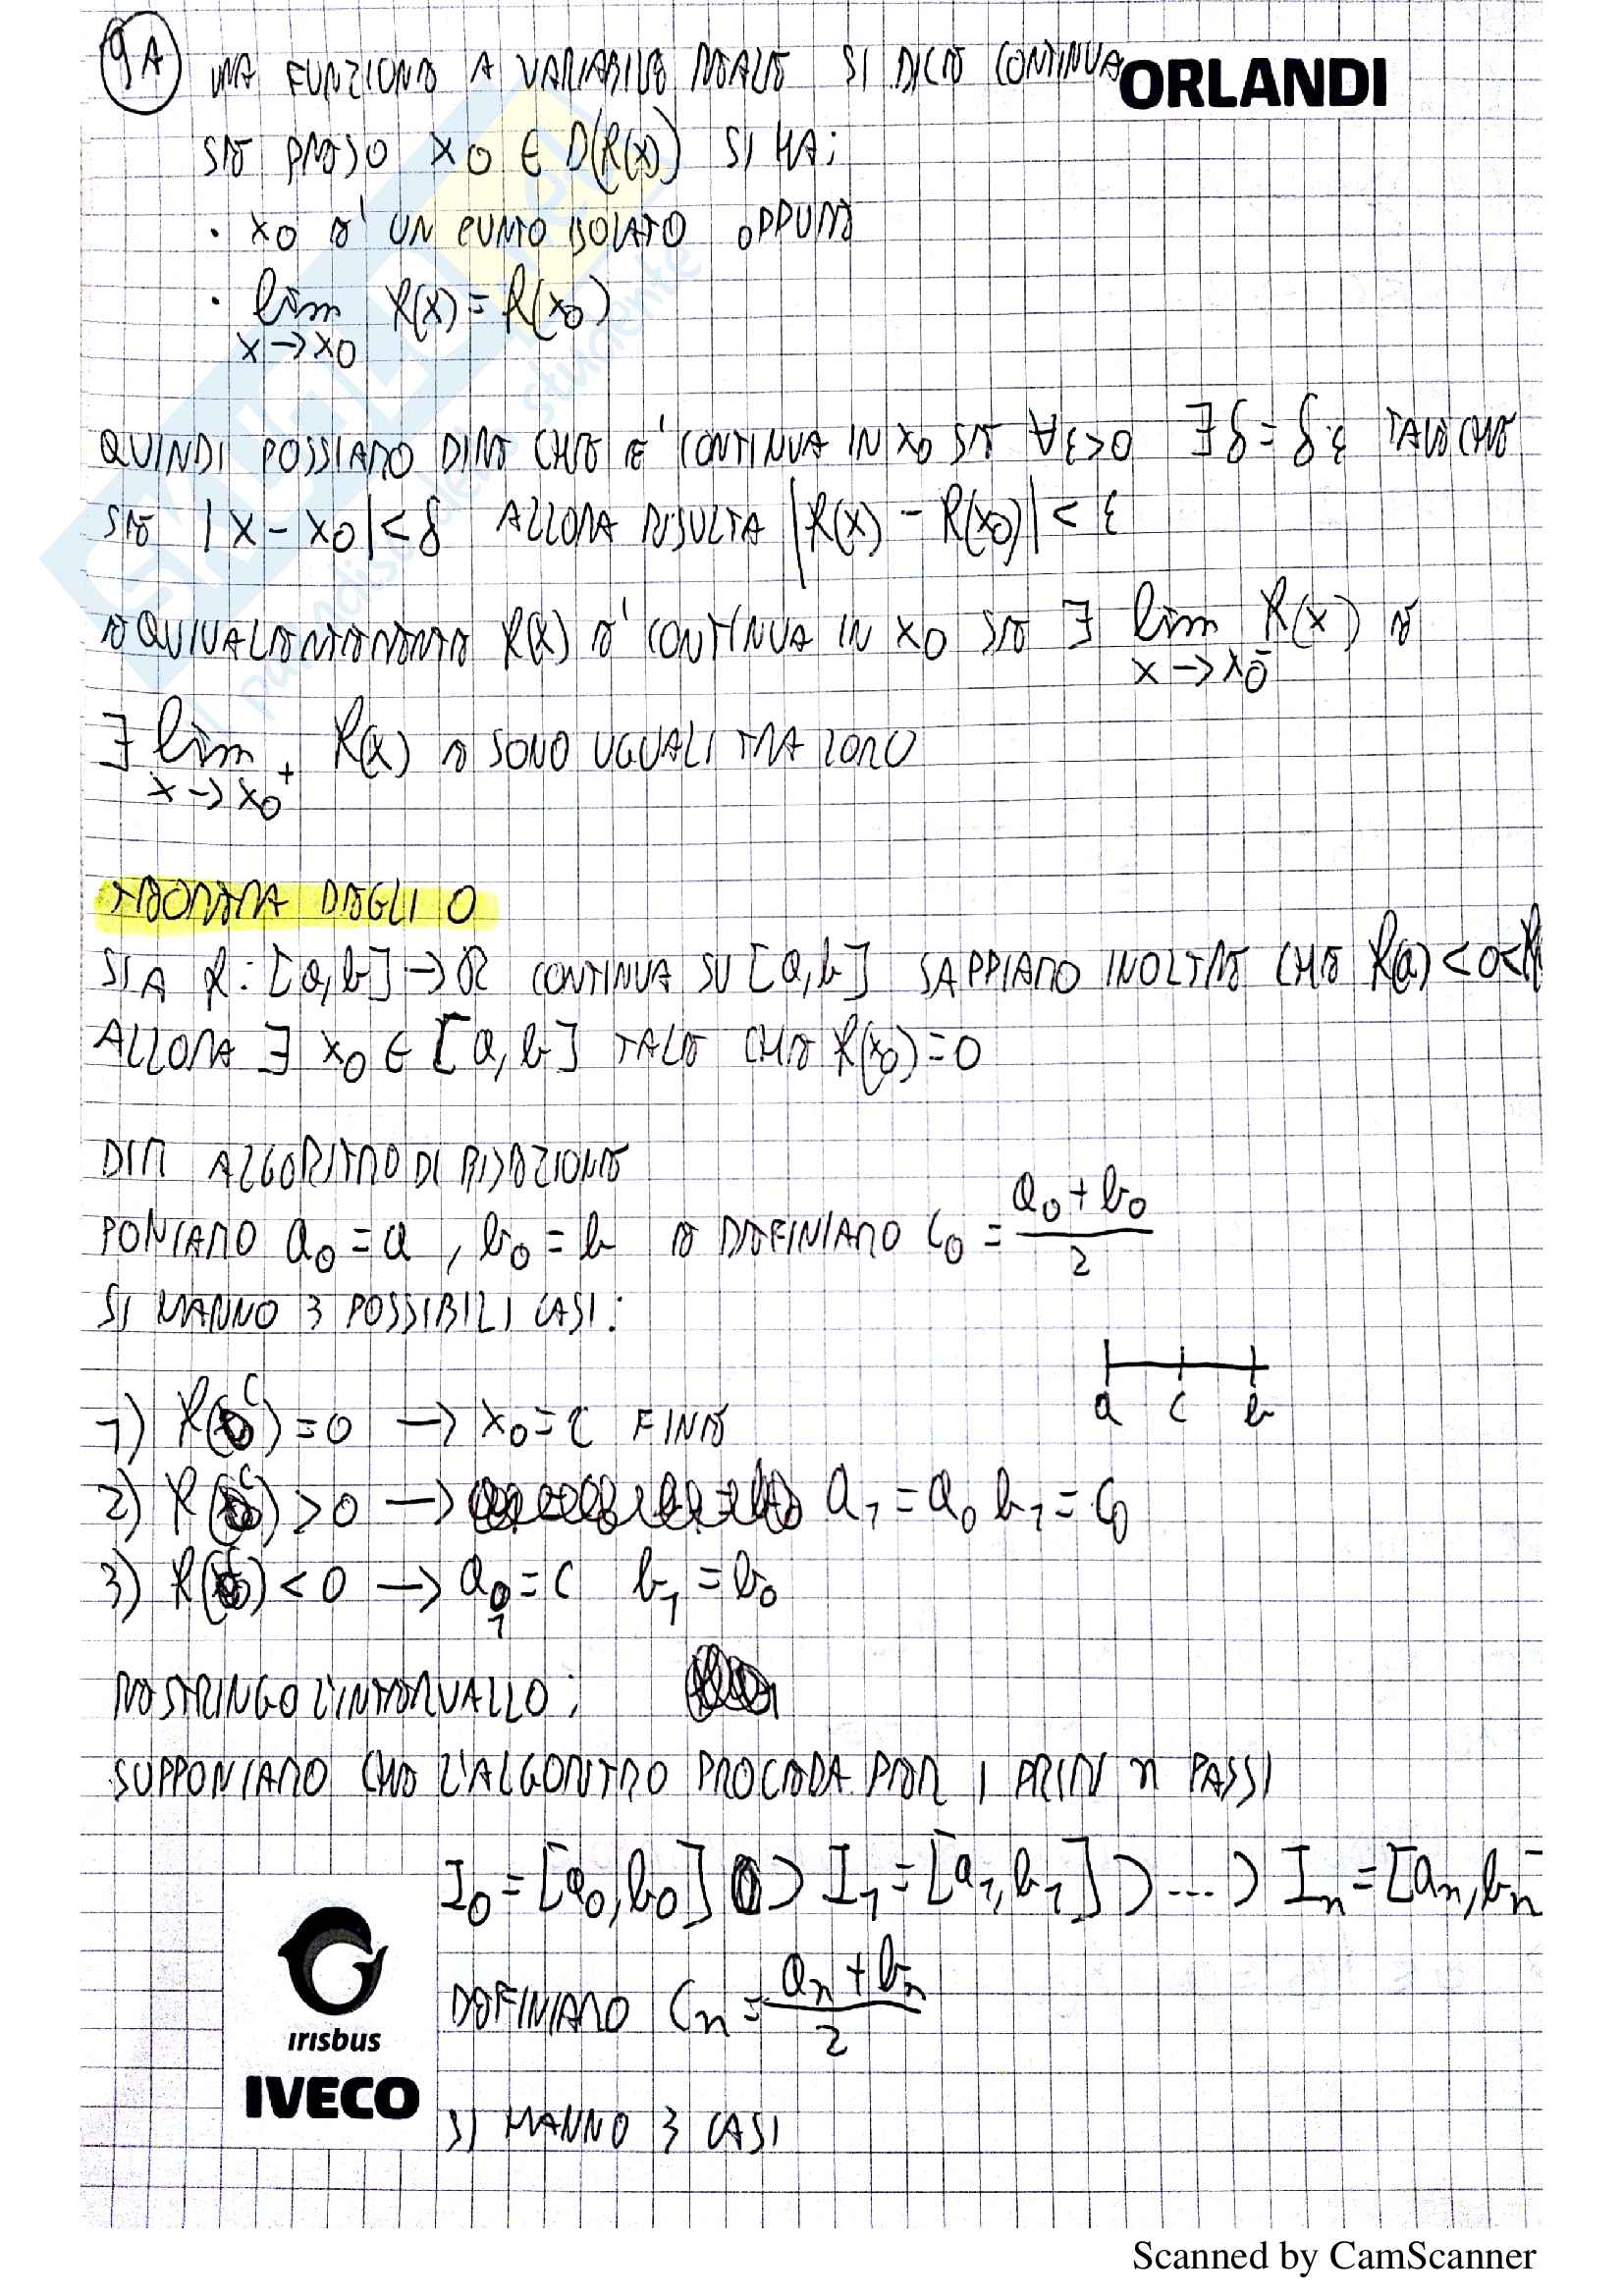 9A UNA FUNZIONE A VARIABILE REALE SI DICE CONTINUA
ORLANDI
SE PRESO x0 ∈ D(f(x)) SI HA:
· x0 E' UN PUNTO ISOLATO OPPURE
· lim f(x) = f(x0)
x→x0
QUINDI POSSIAMO DIRE CHE E' CONTINUA IN x0 SE ∀ε>0 ∃δ=δε TALE CHE
SE |x-x0|<δ ALLORA RISULTA |f(x) - f(x0)| < ε
EQUIVALENTEMENTE f(x) E' CONTINUA IN x0 SE ∃ lim f(x) E
x→x0-
∃ lim f(x) E SONO UGUALI TRA LORO
x→x0+
TEOREMA DEGLI 0
SIA f: [a,b]→ℝ CONTINUA SU [a,b] SAPPIAMO INOLTRE CHE f(a)<0<f
ALLORA ∃ x0 ∈ [a,b] TALE CHE f(x0)=0
DIM ALGORITMO DI BISEZIONE
PONIAMO a0=a, b0=b E DEFINIAMO C0 = (a0+b0)/2
SI HANNO 3 POSSIBILI CASI:
a c b
1) f(c)=0 → x0=c FINE
2) f(c)>0 → a1=a0 b1=c0
3) f(c)<0 → a1=c b1=b0
RESTRINGO L'INTERVALLO:
SUPPONIAMO CHE L'ALGORITMO PROCEDA PER I PRIMI n PASSI
I0=[a0,b0] ⊃ I1=[a1,b1] ⊃ ... ⊃ In=[an,bn
DEFINIAMO Cn = (an+bn)/2
irisbus
IVECO
SI HANNO 3 CASI
Scanned by CamScanner